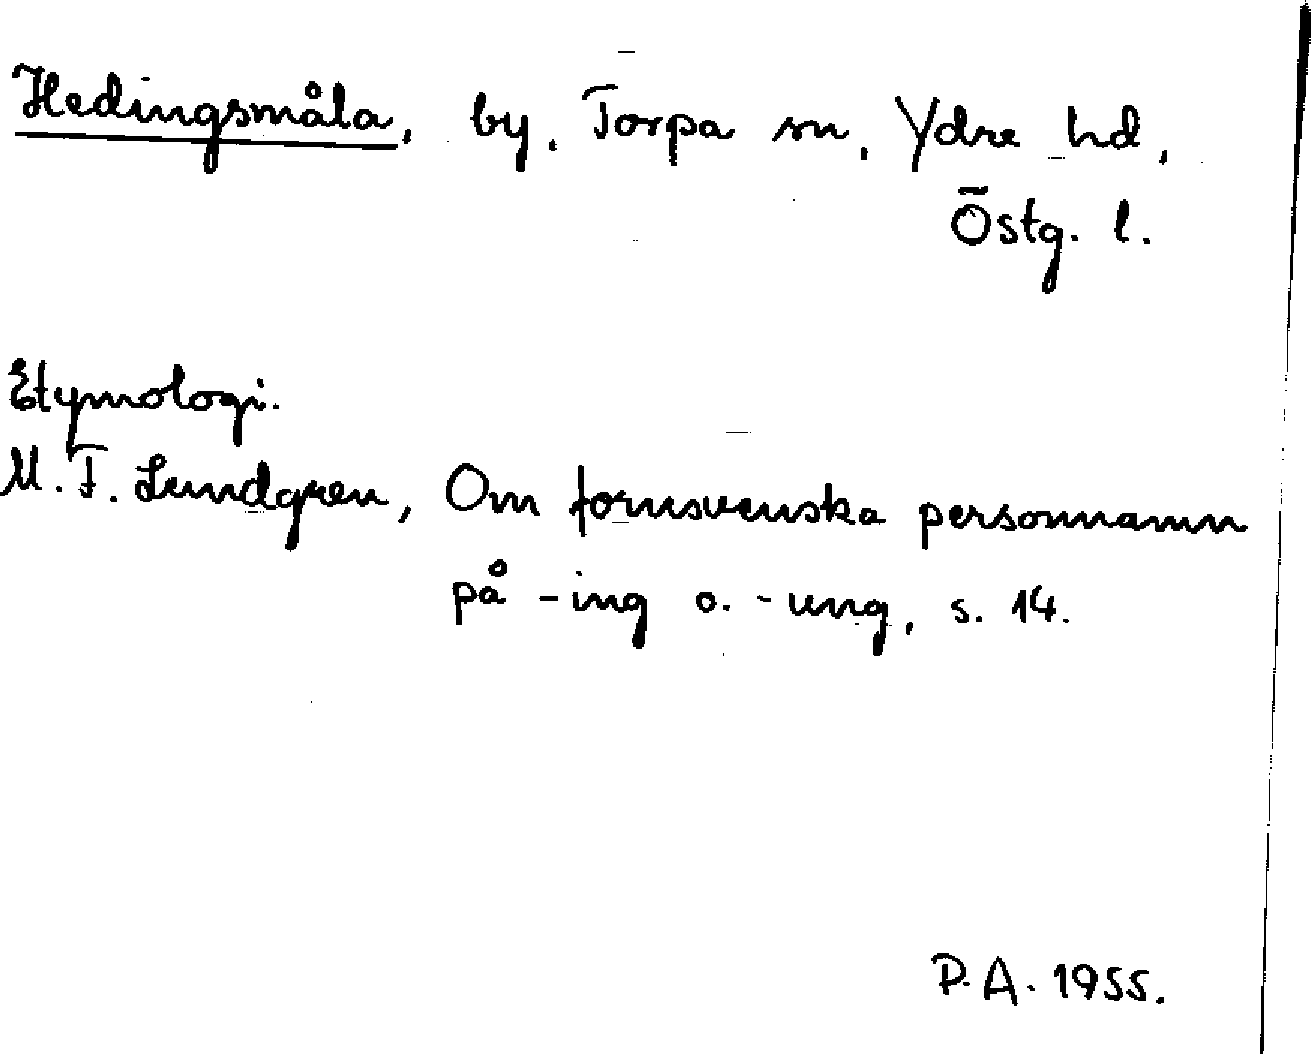 Hedingsmåla, by, Torpa sn, Ydre hd,
Östg. l.
Etymologi.
M. F. Lundgren, Om fornsvenska personnamn
på -ing o. -ung, s. 14.
P. A. 1955.